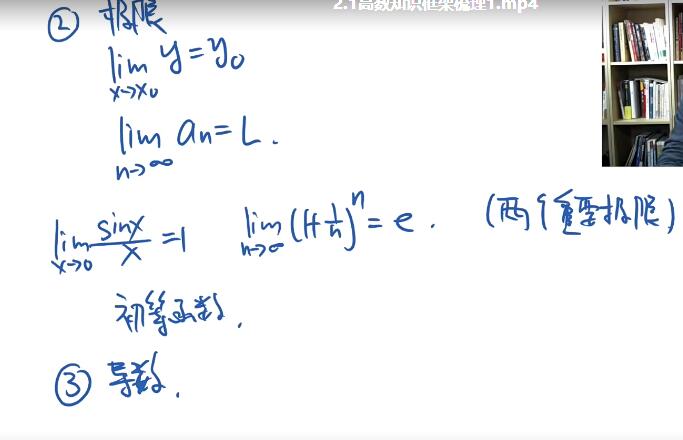 2.1高数知识框架梳理1.mp4
② 极限
lim y=y₀
x→x₀
lim aₙ=L.
n→∞
lim sinx/x =1 lim (1+1/n)ⁿ=e. (两个重要极限)
x→0 n→∞
初等函数.
③ 导数.